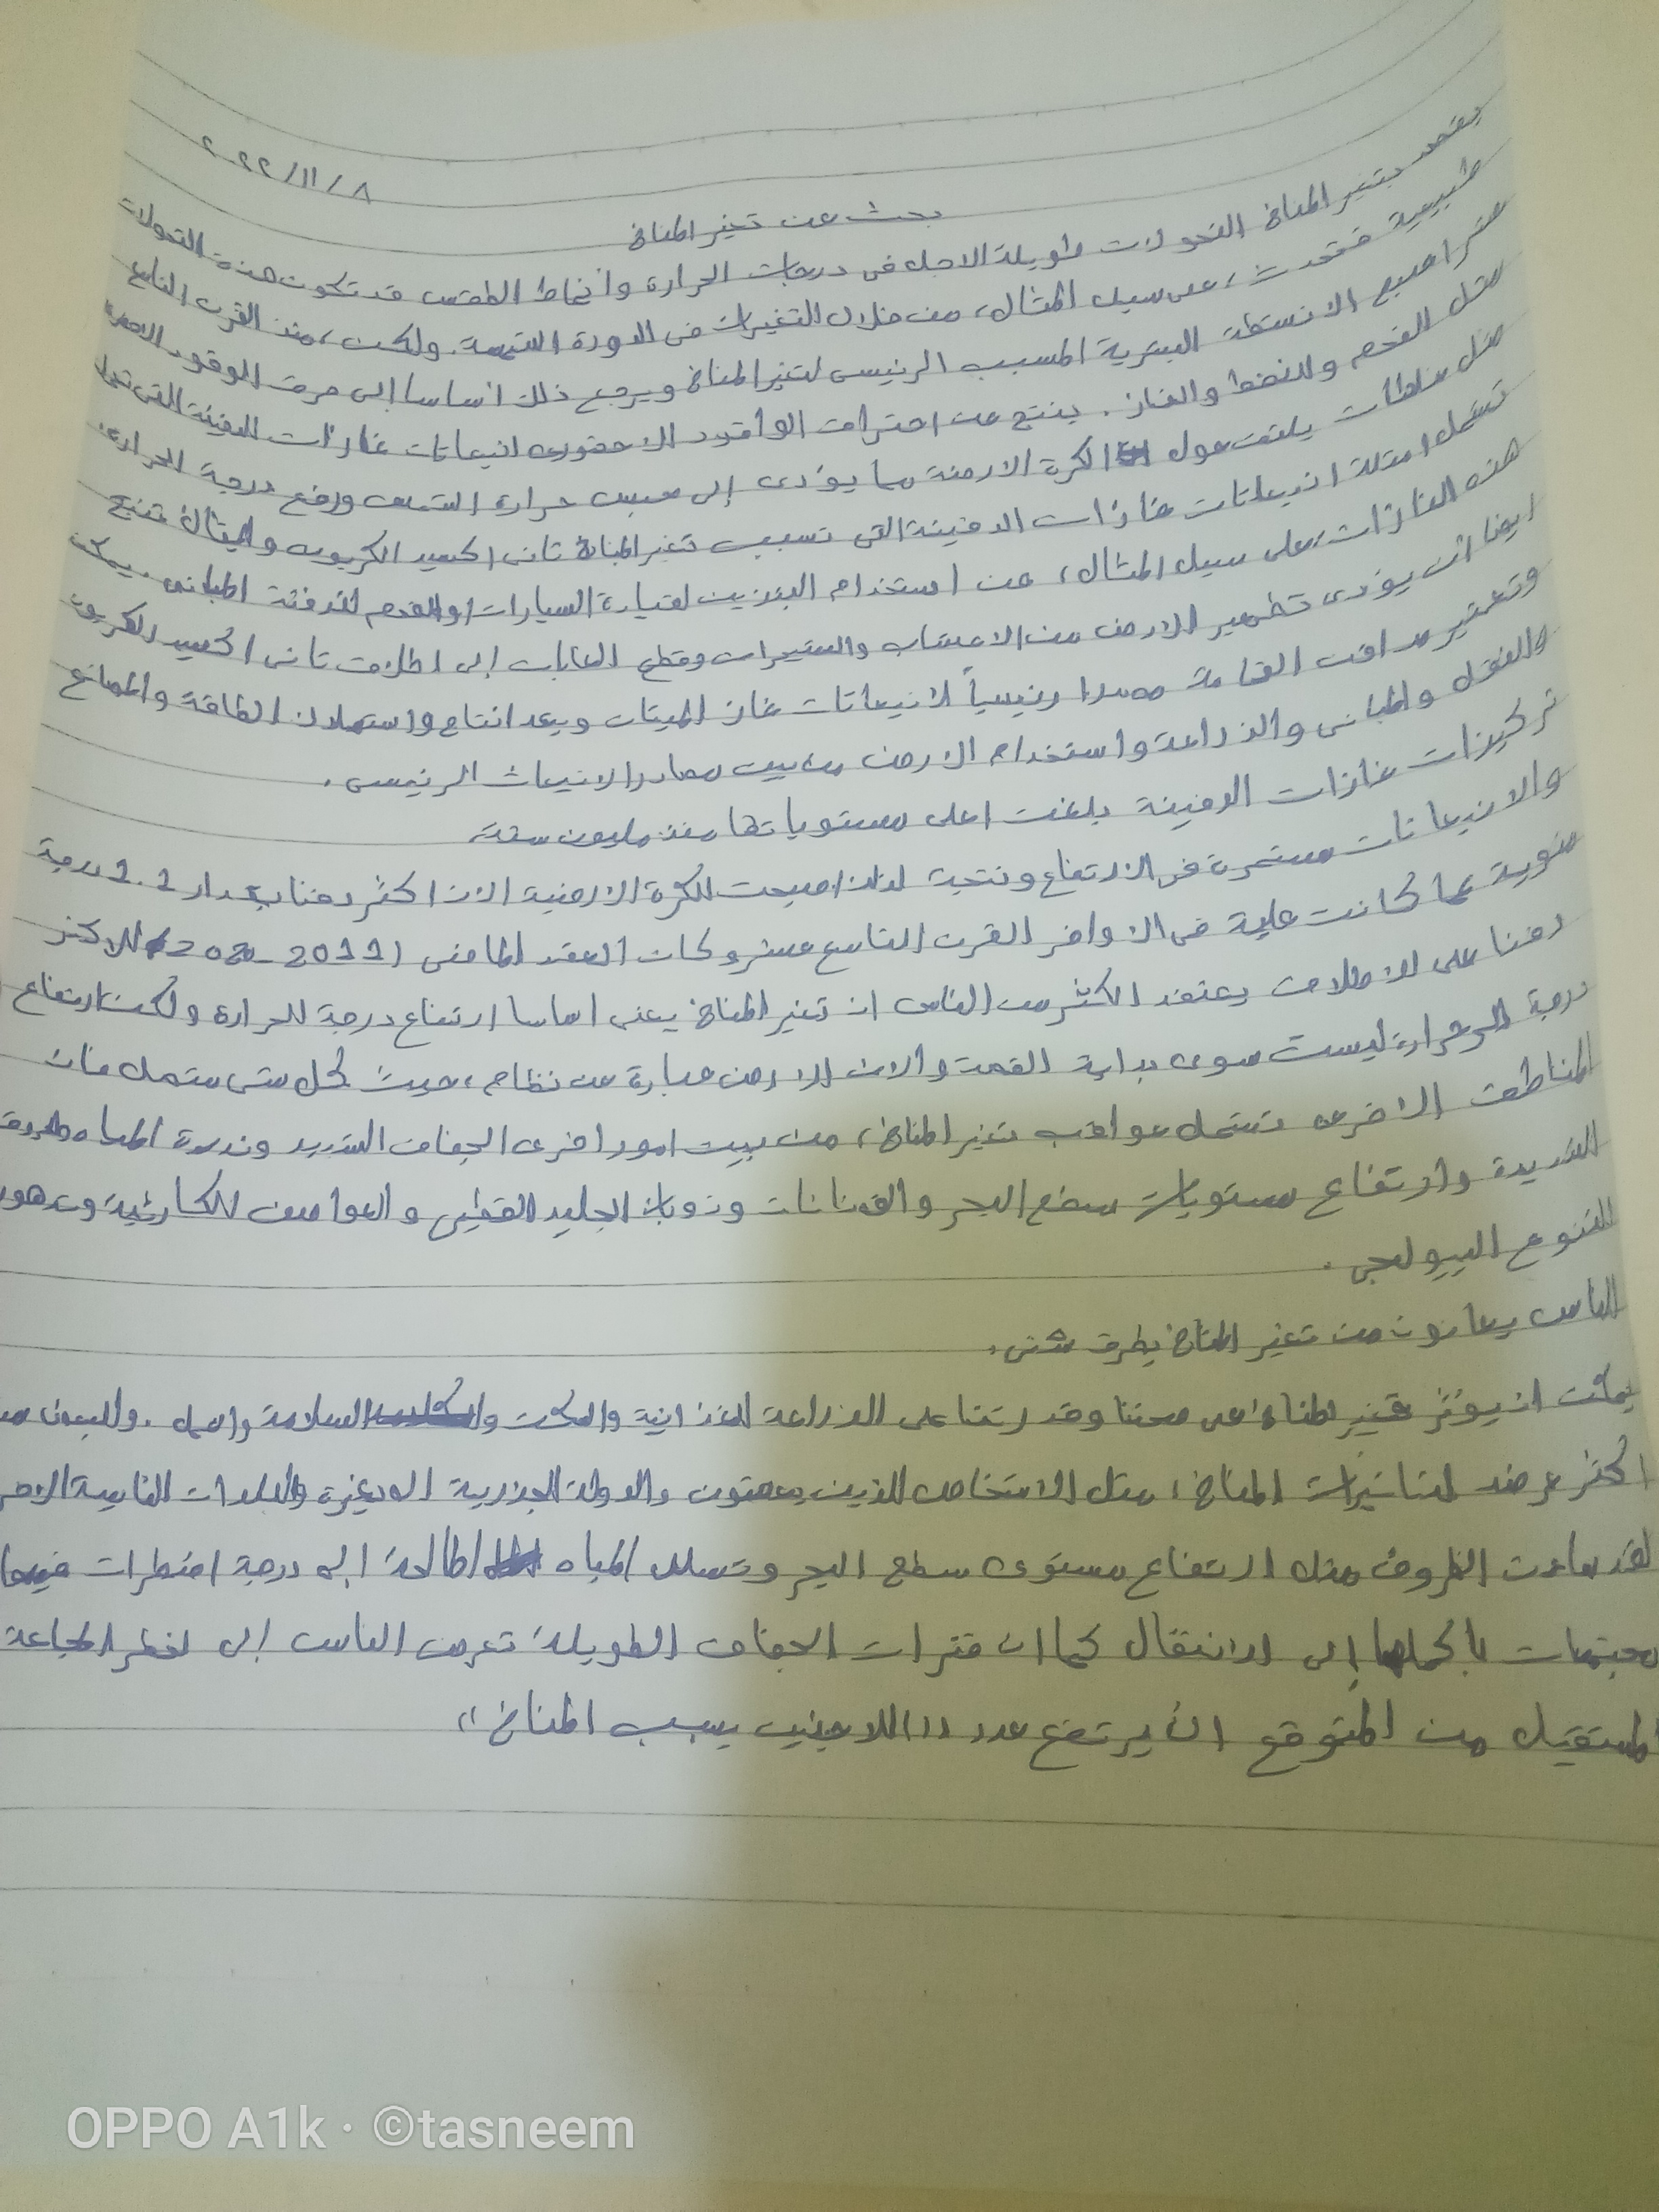 ٢٠٢٢/١١/٨
بحث عن تغير المناخ
يقصد بتغير المناخ التحولات طويلة الاجل فى درجات الحرارة وانماط الطقس قد تكون هذة التحولات
طبيعية فتحدث، على سبيل المثال، من خلال التغيرات فى الدورة الشمسة. ولكن، منذ القرن التاسع
عشر اصبح الانسطة البشرية المسبب الرئيسى لتغير المناخ ويرجع ذلك اساسا إلى حرق الوقود الاحفورى
مثل الفحم والنفط والغاز. ينتج عن احتراق الوقود الاحفورى انبعاثات غازات الدفيئة التى تعمل
مثل غطاات يلتف حول الكرة الارضية مما يؤدى إلى حبس حرارة الشمس ورفع درجة الحرارة.
تشمل امثلة انبعاثات غازات الدفيئة التى تسبب تغير المناخ ثانى اكسيد الكربون والميثان تنتج
هذه الغازات على سبيل المثال، عن استخدام البنزين لقيادة السيارات او الفحم لتدفئة المبانى. يمكن
ايضا ان يؤدى تطهير الارض من الاعشاب والشجيرات وقطع الغابات إلى اطلاق ثانى اكسيد الكربون
وتعتبر مدافن القمامة مصدرا رئيسياً لانبعاثات غاز الميثان ويعد انتاج واستهلاك الطاقة والصانع
والنقل والمبانى والزراعة واستخدام الارض من بين مصادر الانبعاث الرئيسى.
تركيزات غازات الدفيئة بلغت اعلى مستوياتها منذ مليون سنة
والانبعاثات مستمرة فى الارتفاع ونتجية لذلك اصبحت الكرة الارضية الان اكثر دفئا بمقدار 1.1 درجة
مئوية عما كانت علية فى الاواخر القرن التاسع عشر وكان العقد الماضى (2011-2020) الاكثر
دفئا على الاطلاق يعتقد الكثير من الناس ان تغير المناخ يعنى اساسا ارتفاع درجة الحرارة ولكن ارتفاع
درجة الحرارة ليست سوى بداية القصة والان الارض عبارة عن نظام، حيث كل شى متصل فان
المناطق الاخرى تشمل عواقب تغير المناخ، من بين امور اخرى الجفاف الشديد وندرة المياه والحرائق
الشديدة وارتفاع مستويات سطح البحر والفيضانات وذوبان الجليد القطبى والعواصف الكارثية وتدهور
التنوع البيولجى.
الناس يعانون من تغير المناخ بطرق شتى.
يمكن ان يؤثر تغير المناخ على صحتنا وقدرتنا على الزراعة الغذائية والسكن والسلامة والعمل. والبعض منا
اكثر عرضة لتاثيرات المناخ، مثل الاشخاص الذين يعيشون والدولة الجزرية الصغيرة والبلدان النامية الاخرى
لقد ساءت الظروف مثل ارتفاع مستوى سطح البحر وتسلل المياه المالحة إلى درجة اضطرات فيها
مجتمعات باكملها إلى الانتقال كما ان فترات الجفاف الطويلة تعرض الناس إلى لخطر المجاعة
المستقبل من المتوقع ان يرتفع عدد "اللاجئين بسبب المناخ"
OPPO A1k · ©tasneem